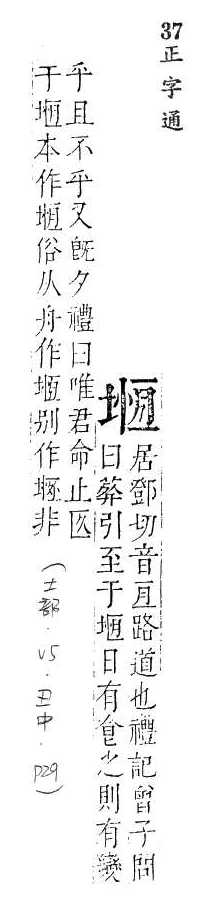 37正字通
堩
居鄧切音亙路道也禮記曾子問
曰葬引至于堩日有食之則有變
乎且不乎又旣夕禮曰唯君命止匛
于堩本作堩俗从舟作堩别作堩非
(土部.V5.丑中.P29)